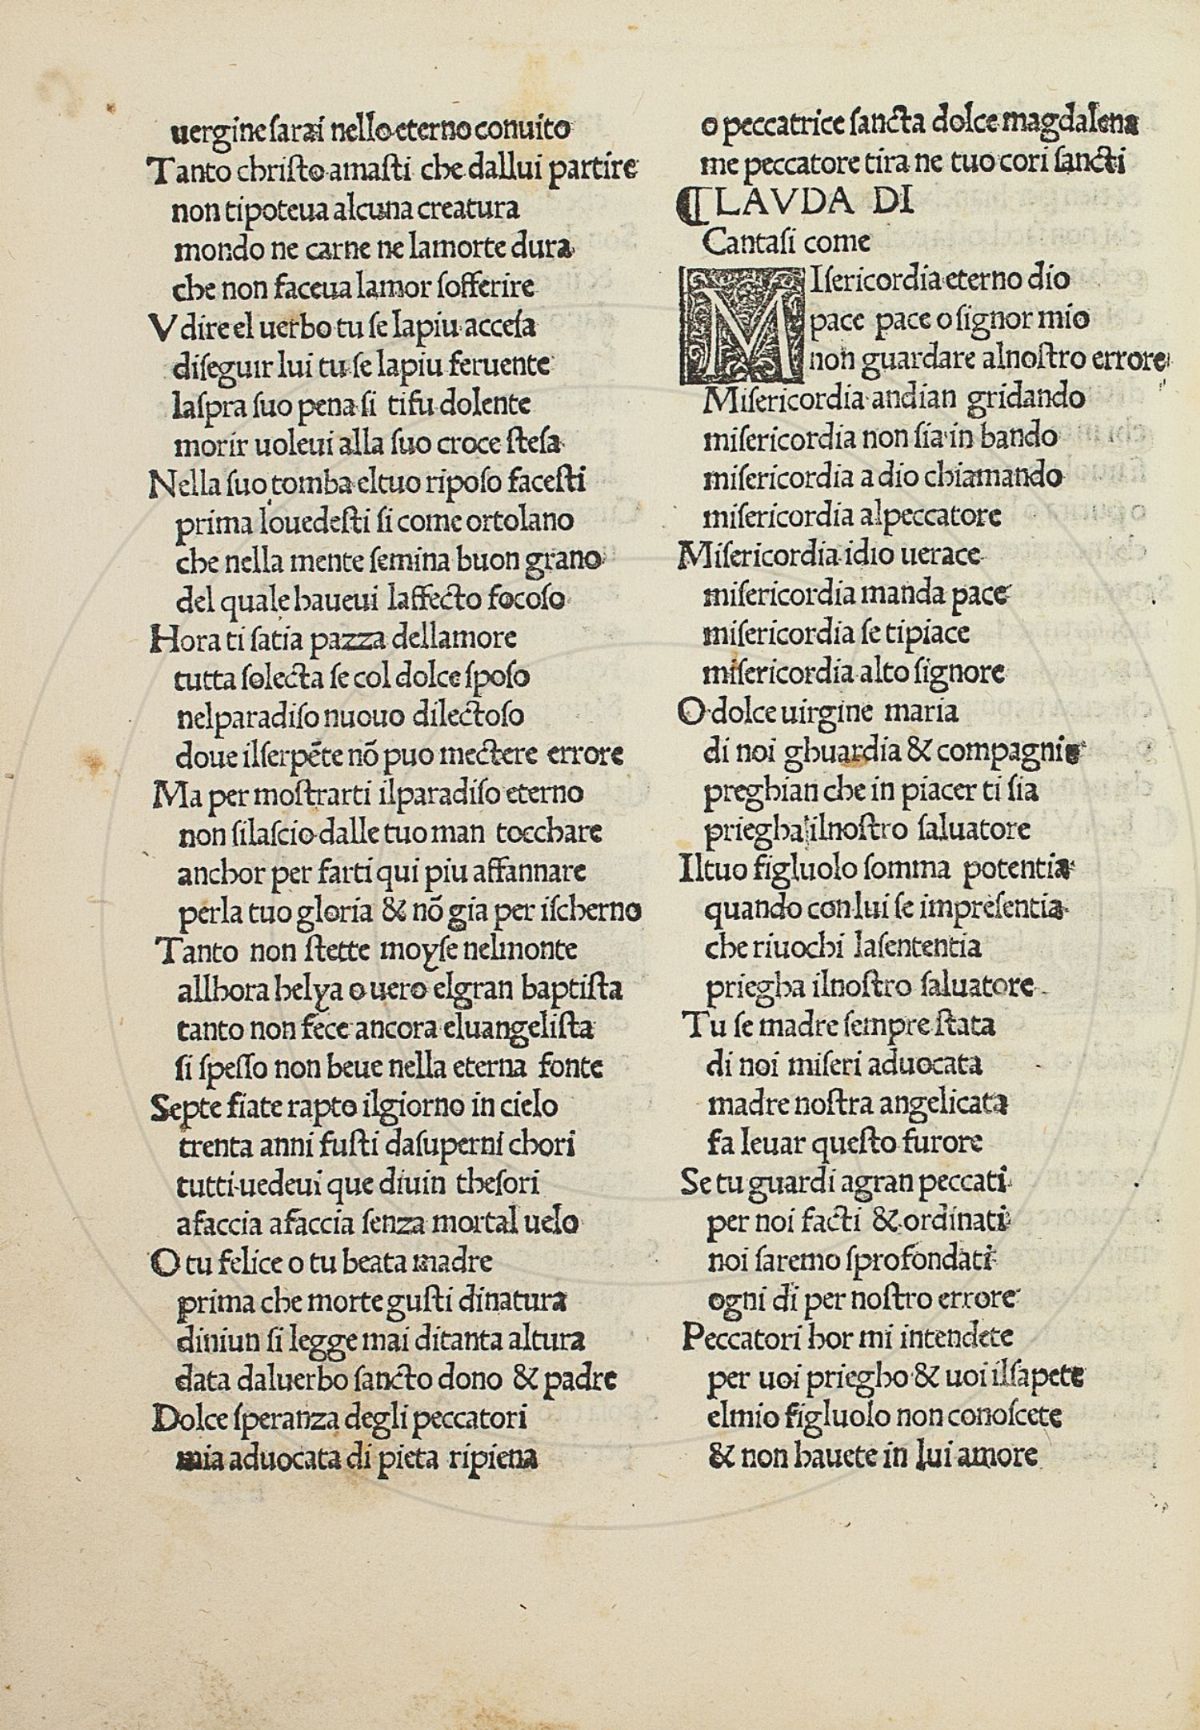 uergine sarai nello eterno conuito
Tanto christo amasti che dallui partire
non tipoteua alcuna creatura
mondo ne carne ne lamorte dura
che non faceua lamor sofferire
Vdire el uerbo tu se lapiu accesa
diseguir lui tu se lapiu feruente
laspra suo pena si tifu dolente
morir uoleui alla suo croce stesa
Nella suo tomba eltuo riposo facesti
prima louedesti si come ortolano
che nella mente semina buon grano
del quale haueui laffecto focoso
Hora ti satia pazza dellamore
tutta solecta se col dolce sposo
nelparadiso nuouo dilectoso
doue ilserpēte nō puo mectere errore
Ma per mostrarti ilparadiso eterno
non silascio dalle tuo man tocchare
anchor per farti qui piu affannare
perla tuo gloria & nō gia per ischerno
Tanto non stette moyse nelmonte
allhora helya o uero elgran baptista
tanto non fece ancora eluangelista
si spesso non beue nella eterna fonte
Septe fiate rapto ilgiorno in cielo
trenta anni fusti dasuperni chori
tutti uedeui que diuin thesori
afaccia afaccia senza mortal uelo
O tu felice o tu beata madre
prima che morte gusti dinatura
diniun si legge mai ditanta altura
data daluerbo sancto dono & padre
Dolce speranza degli peccatori
mia aduocata di pieta ripiena
o peccatrice sancta dolce magdalena
me peccatore tira ne tuo cori sancti
¶LAVDA DI
Cantasi come
MIsericordia eterno dio
pace pace o signor mio
non guardare alnostro errore
Misericordia andian gridando
misericordia non sia in bando
misericordia a dio chiamando
misericordia alpeccatore
Misericordia idio uerace
misericordia manda pace
misericordia se tipiace
misericordia alto signore
O dolce uirgine maria
di noi ghuardia & compagnie
preghian che in piacer ti sia
priegha ilnostro saluatore
Iltuo figluolo somma potentia
quando con lui se impresentia
che riuochi lasententia
priegha ilnostro saluatore
Tu se madre sempre stata
di noi miseri aduocata
madre nostra angelicata
fa leuar questo furore
Se tu guardi agran peccati
per noi facti & ordinati
noi saremo sprofondati
ogni di per nostro errore
Peccatori hor mi intendete
per uoi priegho & uoi ilsapete
elmio figluolo non conoscete
& non hauete in lui amore